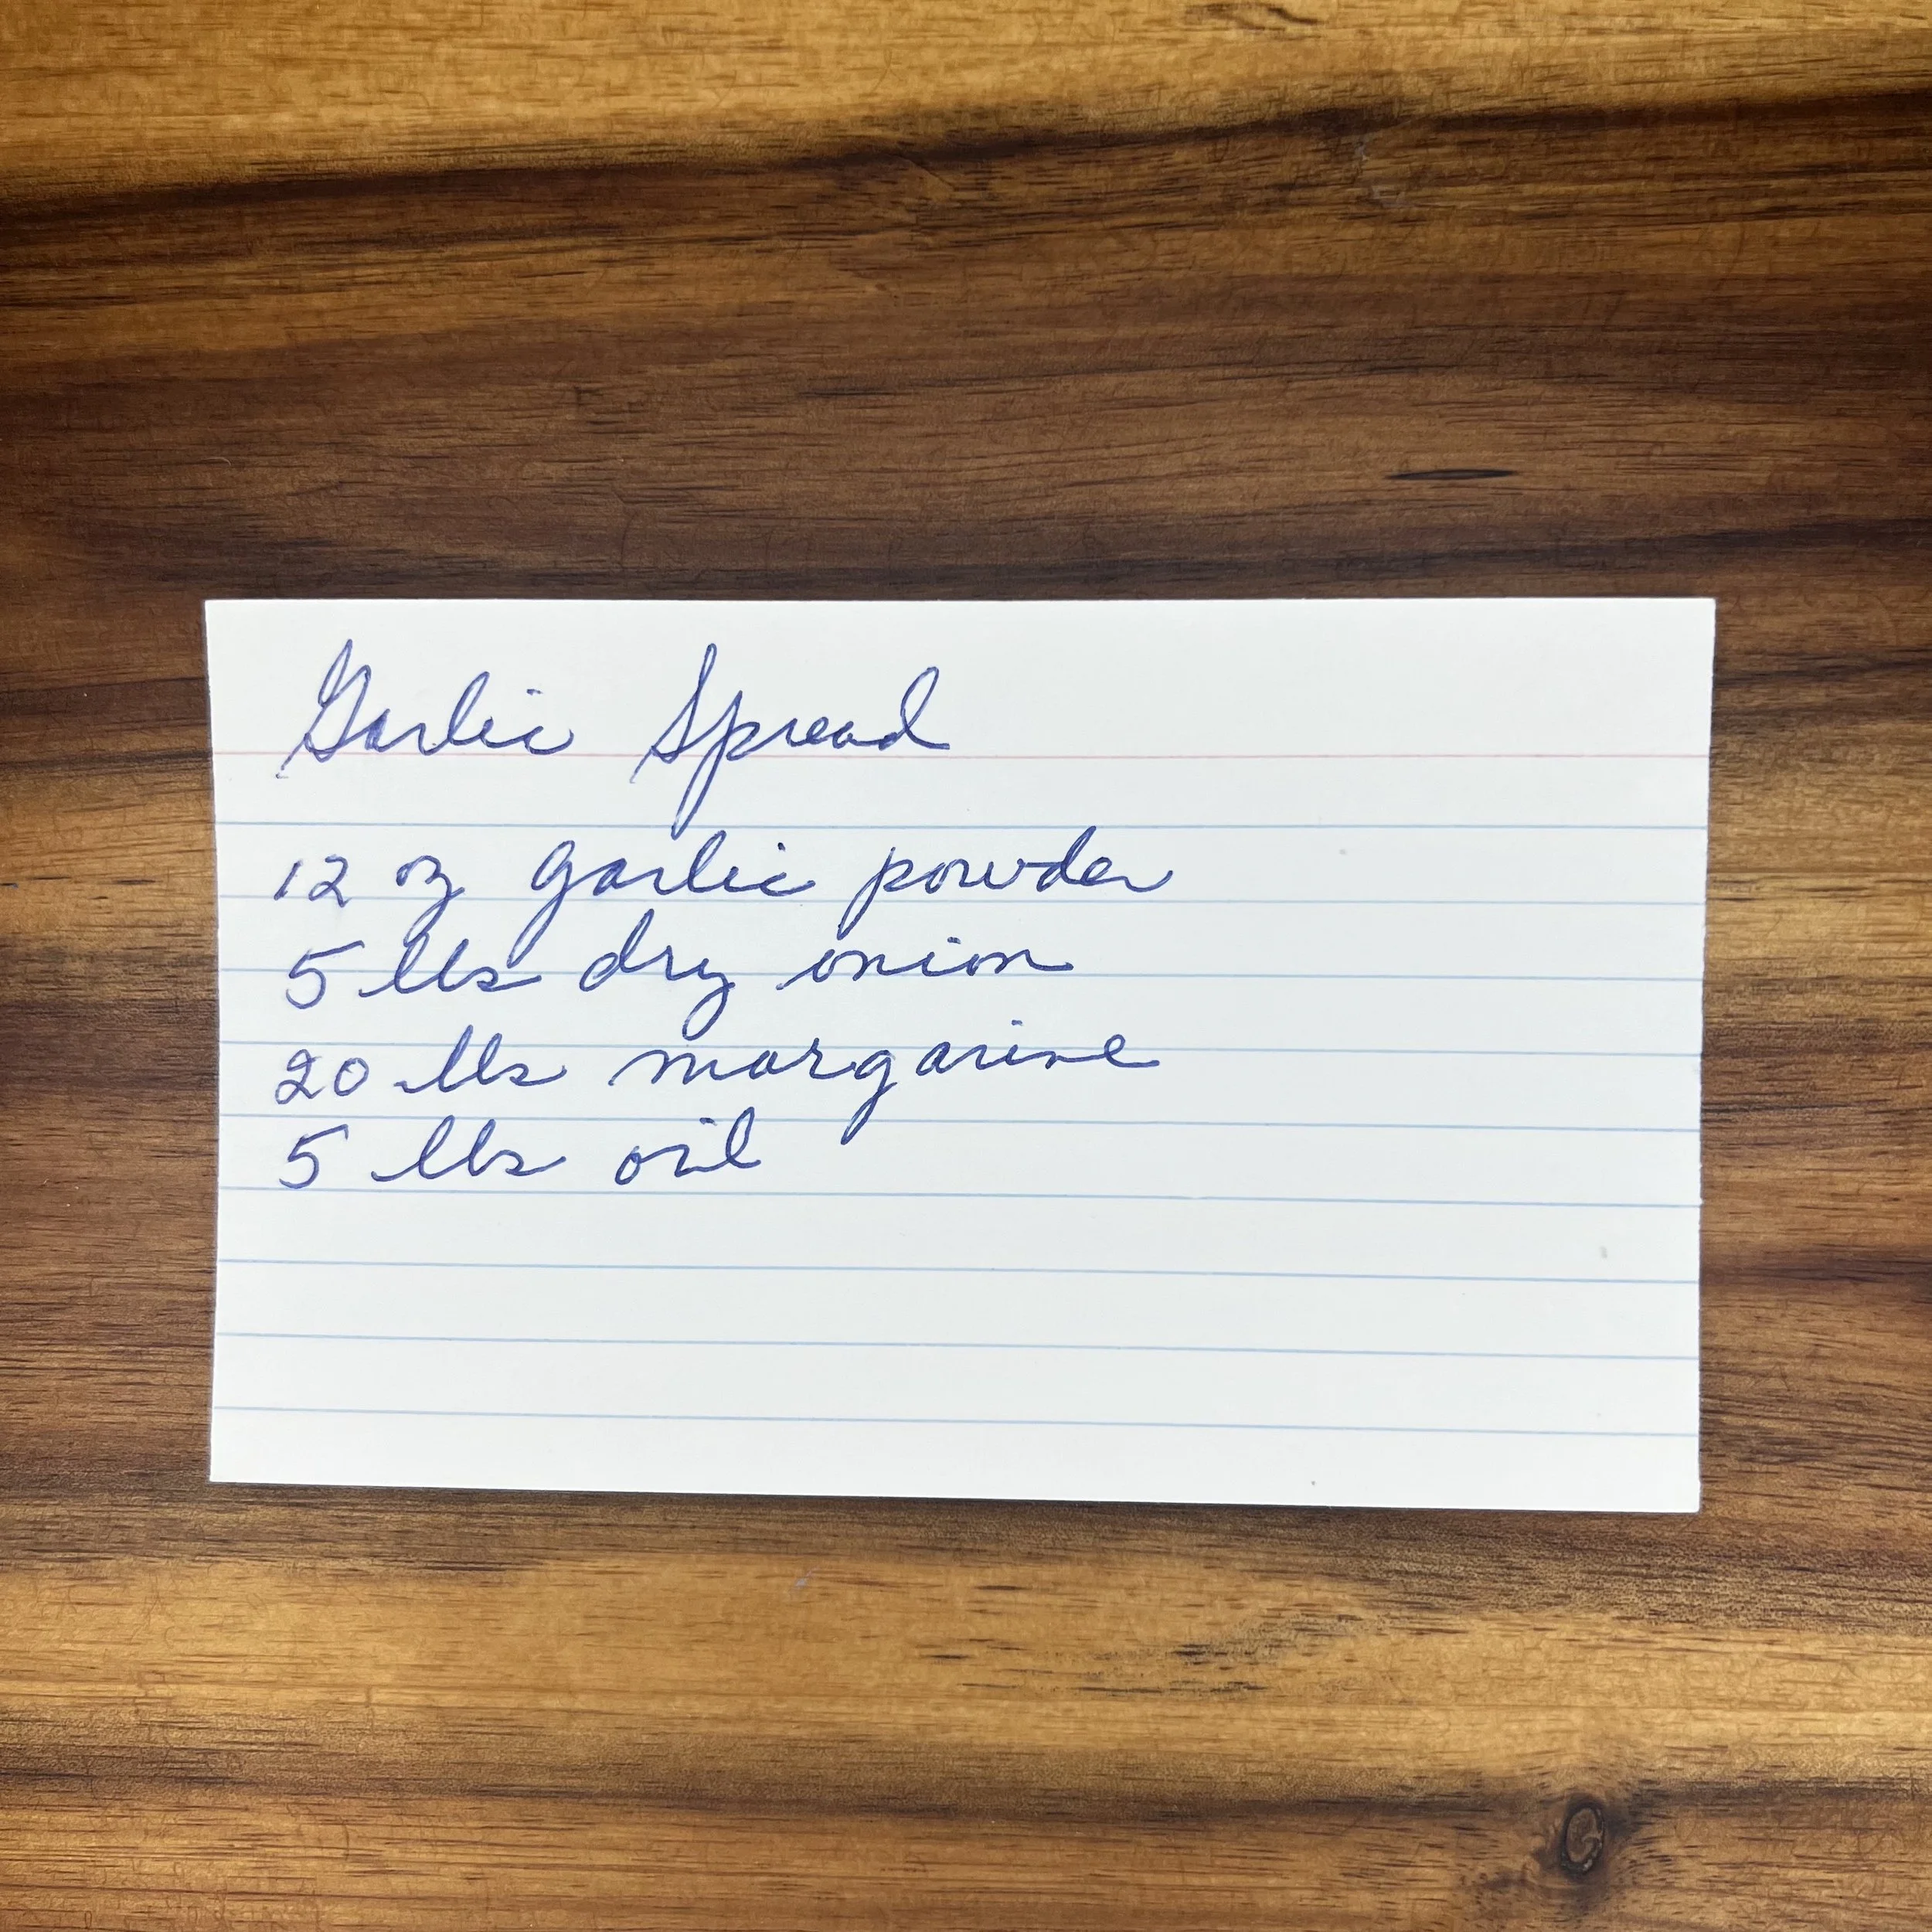 Garlic Spread
12 oz garlic powder
5 lbs dry onion
20 lbs margarine
5 lbs oil